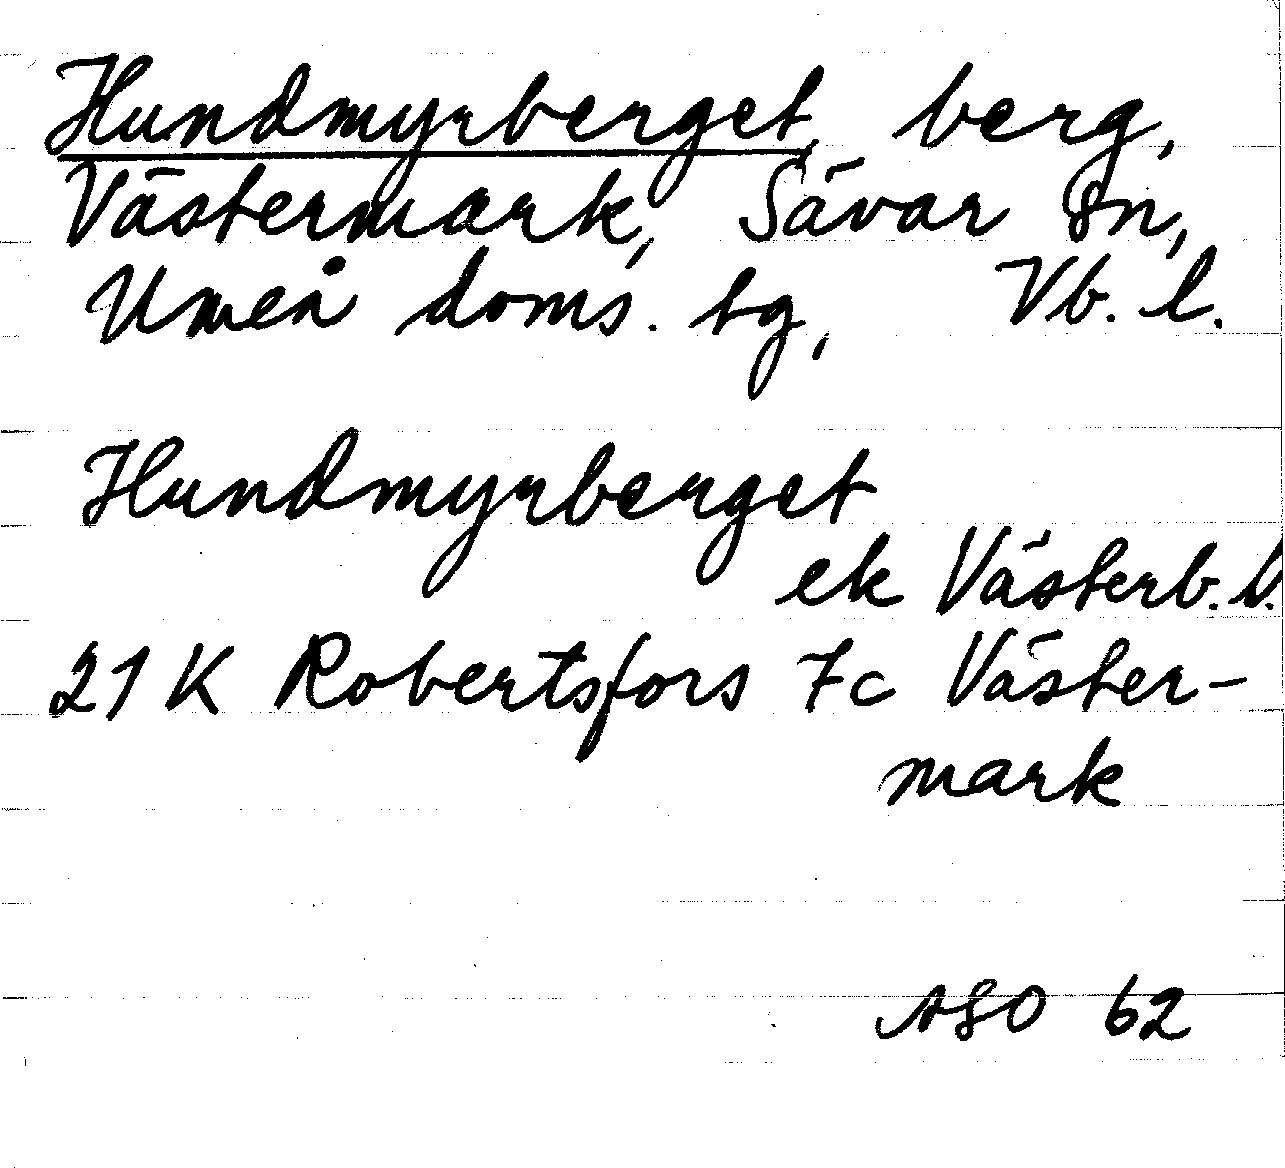 Hundmyrberget, berg,
Västermark, Sävar sn,
Umeå doms. tg, Vb. l.
Hundmyrberget
ek Västerb. l.
21 K Robertsfors 7c Väster-
mark
ASO 62